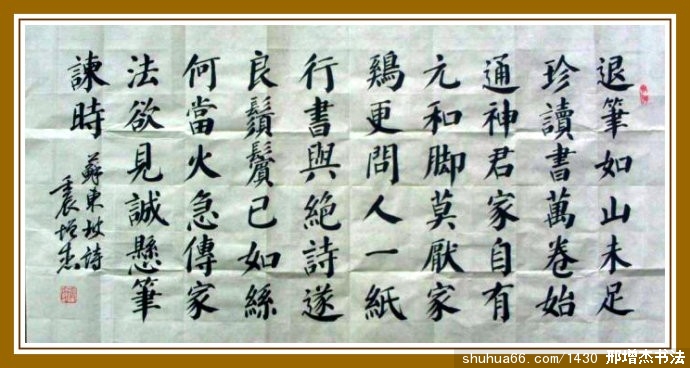 退筆如山未足
珍讀書萬卷始
通神君家自有
元和脚莫厭家
鷄更問人一紙
行書與絕詩遂
良鬚鬢已如絲
何當火急傳家
法欲見誠懸筆
諫時
蘇東坡詩
壬辰增杰
shuhua66.com/1430 邢增杰书法